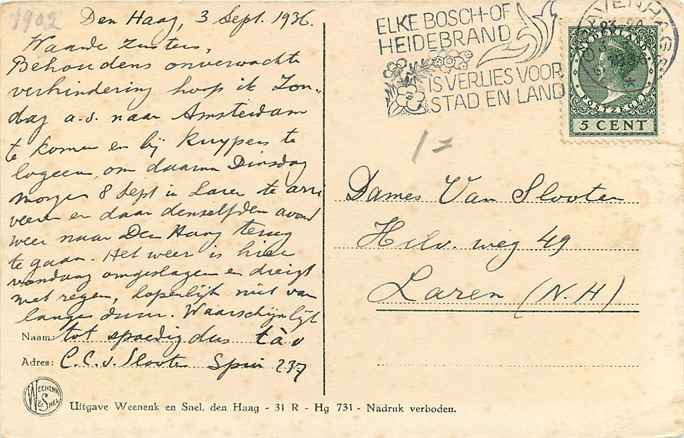 1902
Den Haag, 3 Sept. 1936.
Waarde Zusters,
Behoudens onverwachte
verhindering hoop ik Zon-
dag a.s. naar Amsterdam
te komen en bij Kuypers te
logeeren, om daarna Dinsdag
morgen 8 Sept in Laren te arri
veeren en daar denzelfden avond
weer naar Den Haag terug
te gaan. Het weer is hier
vandaag omgeslagen en dreigt
met regen, hopenlijk niet van
langen duur. Waarschijnlijk
Naam: tot spoedig dus t.à.v
Adres: C.C. v. Slooten Spui 237
WEENENK & SNEL
Uitgave Weenenk en Snel, den Haag - 31 R - Hg 731 - Nadruk verboden.
ELKE BOSCH-OF
HEIDEBRAND
IS VERLIES VOOR
STAD EN LAND
'S GRAVENHAGE
NEDERLAND
5 CENT
1=
Dames Van Slooten
Hilv. weg 49
Laren (N.H)